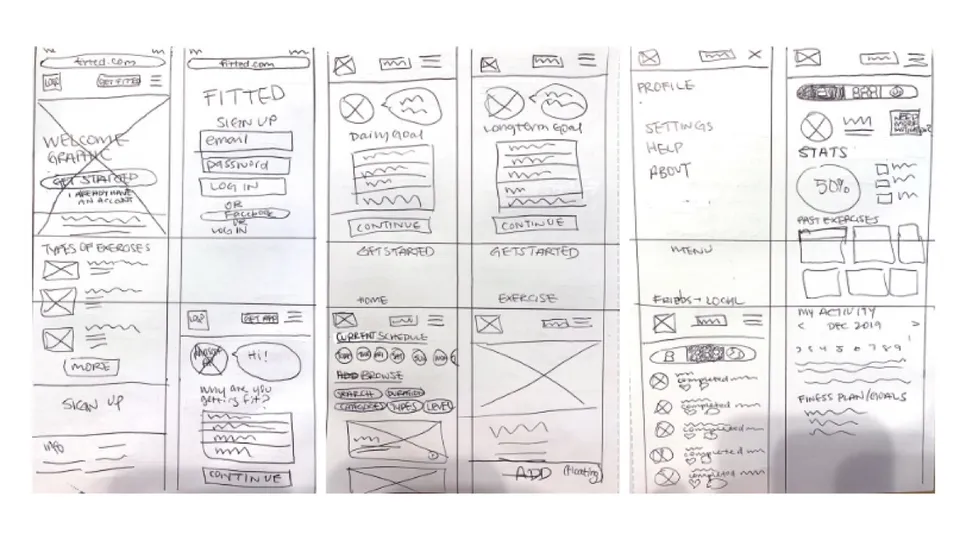 fitted.com
LOGO GET FITTED
WELCOME
GRAPHIC
GET STARTED
I ALREADY HAVE
AN ACCOUNT
TYPES OF EXERCISES
MORE
SIGN UP
Info
fitted.com
FITTED
SIGN UP
email
password
LOG IN
OR
Facebook
OR
LOG IN
LOGO GET APP
Hi!
Why are you
getting fit?
CONTINUE
Daily Goal
CONTINUE
GET STARTED
HOME
CURRENT SCHEDULE
BROWSE
SEARCH DURATION
CATEGORIES TYPES LEVEL
Longterm Goal
CONTINUE
GET STARTED
EXERCISE
ADD (floating)
PROFILE
SETTINGS
HELP
ABOUT
MENU
FRIENDS + LOCAL
completed
completed
completed
completed
completed
NEED
MORE
STATS
50%
PAST EXERCISES
MY ACTIVITY
< DEC 2019 >
FINESS PLAN/GOALS